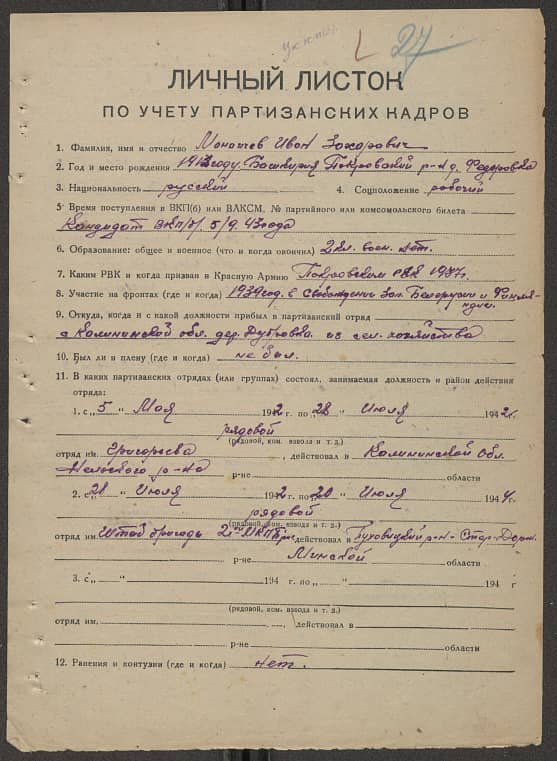 27
ЛИЧНЫЙ ЛИСТОК
ПО УЧЕТУ ПАРТИЗАНСКИХ КАДРОВ
1. Фамилия, имя и отчество Иван Захарович
2. Год и место рождения Башкирия Покровский р-н д. Федоровка
3. Национальность русский 4. Соцположение рабочий
5. Время поступления в ВКП(б) или ВЛКСМ, № партийного или комсомольского билета
Кандидат ВКП/б/. 5/9. 43 года
6. Образование: общее и военное (что и когда окончил) 2 кл. воен. нет.
7. Каким РВК и когда призван в Красную Армию Покровским РВК 1937г.
8. Участие на фронтах (где и когда) 1939 год. в Свобождении Зап. Белоруссии и Финлян-
дии.
9. Откуда, когда и с какой должности прибыл в партизанский отряд
с Калининской обл. дер. Дубровка из сел. хозяйства
10. Был ли в плену (где и когда) не был.
11. В каких партизанских отрядах (или группах) состоял, занимаемая должность и район действия
отряда:
1. с „5 " Мая 1942 г. по „28 " Июля 1942 г.
рядовой
(рядовой, ком. взвода и т. д.)
отряд им. Григорьева, действовал в Калининской Обл.
р-на р-не области
2. с „28 " Июля 1942 г. по „20 " Июля 1944 г.
рядовой
(рядовой, ком. взвода и т. д.)
отряд им. Штаб бригады 2й действовал в Пуховицкий р-н - Стар-Дор.
р-не Минской области
3. с „ " 194 г. по „ " 194 г
(рядовой, ком. взвода и т. д.)
отряд им. , действовал в
р-не области
12. Ранения и контузии (где и когда) нет.